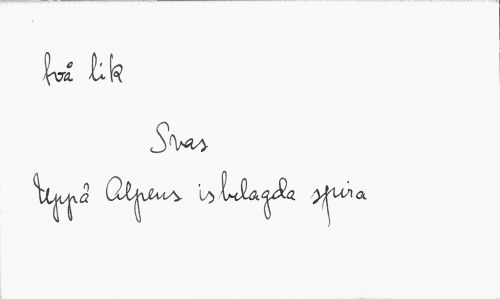 två lik
Svas
Uppå Alpens isbelagda spira